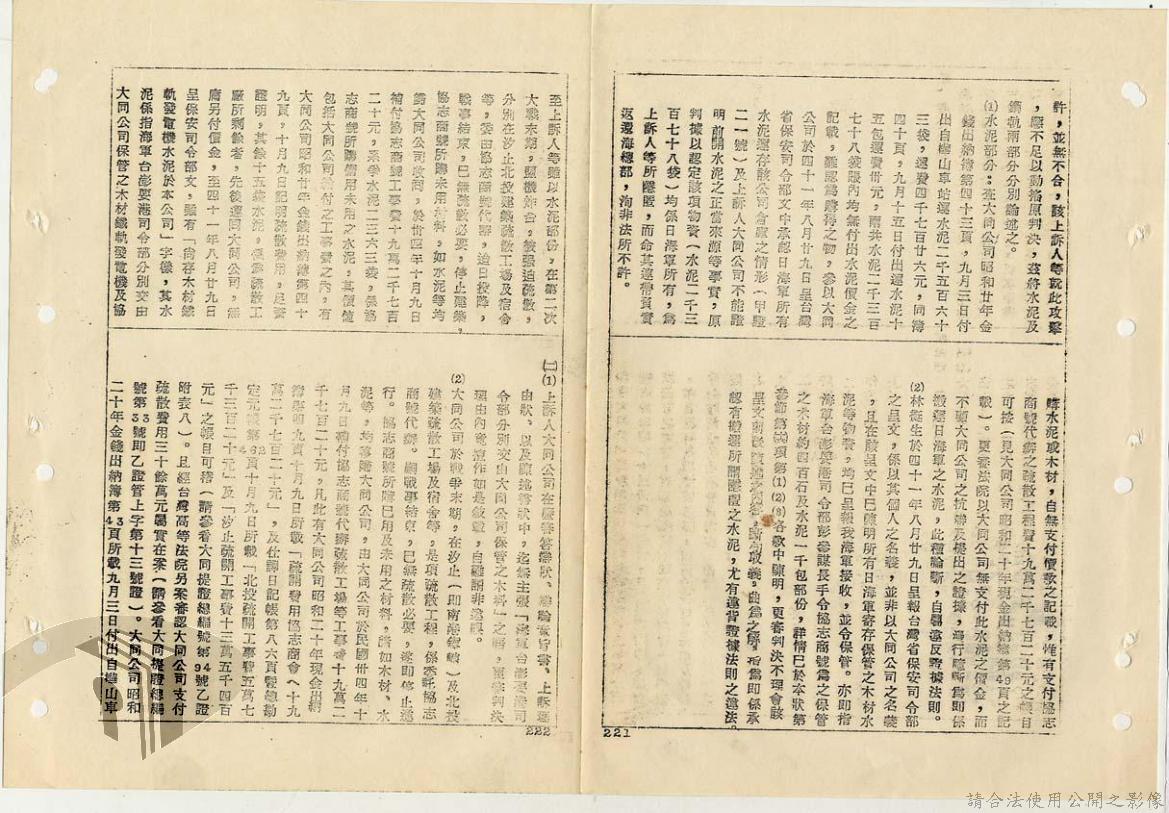 許，並無不合，該上訴人等就此攻擊
，應不足以動搖原判決，茲將水泥及
鋼軌兩部分分別論述之。
(1)水泥部分：查大同公司昭和廿年金
錢出納簿第四十三頁，九月三日付
出自樺山車站運水泥二千五百六十
三袋，運費四千七百廿六元，同簿
四十頁，九月十五日付出運水泥十
五包運費卅元，兩共水泥二千三百
七十八袋賬內均無付出水泥價金之
記載，難認為購得之物，參以大同
公司於四十一年八月廿九日呈台灣
省保安司令部文中承認日海軍所有
水泥還存該公司倉庫之情形（甲證
二一號）及上訴人大同公司不能證
明前開水泥之正當來源等事實，原
判據以認定該項物資（水泥二千三
百七十八袋）均係日海軍所有，為
上訴人等所隱匿，而命其連帶賠償
返還海總部，洵非法所不許。
購水泥或木材，自無支付價款之記載，惟有支付協志
商號代辦之疏散工程費十九萬二千七百二十元之帳目
可按（見大同公司昭和二十年現金出納簿第49頁之記
載）。更審法院以大同公司無支付此水泥之價金，而
不顧大同公司之抗辯及提出之證據，遽行臆斷為即係
搬運日海軍之水泥，此種論斷，自屬違反證據法則。
(2)林衞生於四十一年八月廿九日呈報台灣省保安司令部
之呈文，係以其個人之名義，並非以大同公司之名義
，且在該呈文中已陳明所有日海軍寄存保管之木材水
泥等物資，均已呈報我海軍接收，並令保管。亦即指
海軍台澎要港司令部彭參謀長手令協志商號為之保管
之木材約四百石及水泥一千包部份，詳情已於本狀第
叁節第㈥項第(1)(2)(3)各款中陳明，更審判決不理會該
呈文前後敘述之內容，斷句取義，曲為之解，指為即係承
認有搬運所謂隱匿之水泥，尤有違背證據法則之違法。
221
至上訴人等雖以水泥部份，在第二次
大戰末期，盟機炸台，被强迫疏散，
分別在汐止北投建築疏散工場及宿舍
等，委由協志商號代辦，迨日投降，
戰事結束，已無疏散必要，停止建築，
志商號所購未用材料，如水泥等均
歸大同公司收回，於卅四年十月九日
補付協志商號工事費十九萬二千七百
二十元，系爭水泥二三六三袋，係協
志商號所購備用未用之水泥，其價值
包括大同公司給付之工事費之內，有
大同公司昭和廿年金錢出納簿第四十
九頁，十月九日記明疏散費用，足資
證明，其餘十五袋水泥，係屬疏散工
廠所剩餘者，先後運回大同公司，無
庸另付價金，至四十一年八月廿九日
呈保安司令部文，雖有「尚存木材鐵
軌發電機水泥於本公司」字樣，其水
泥係指海軍台澎要港司令部分別交由
大同公司保管之木材鐵軌發電機及協
㈡(1)上訴人大同公司在歷審答辯狀、辯論意旨書、上訴理
由狀、以及陳述等狀中，迄無主張「海軍台澎要港司
令部分別交由大同公司保管之木料」之語，更審判決
理由內竟為作如是敘載，自難謂非違誤。
(2)大同公司於戰爭末期，在汐止（即南港鎮）及北投
建築疏散工場及宿舍等，是項疏散工程，係委託協志
商號代辦。嗣戰事結束，已無疏散必要，遂即停止進
行。協志商號所購已用及未用之材料，諸如木材、水
泥等，均等歸大同公司，由大同公司於民國卅四年十
月九日補付協志商號代辦疏散工場等工事費十九萬二
千七百二十元，凡此有大同公司昭和二十年現金出納
簿第四九頁十月九日所載「疏開費用協志商會〈十九
萬二千七百二十元」，及仕譯日記帳第八六頁暨總勘
定元帳第462頁十月九日所載「北投疏開工事費五萬七
千三百二十元」及「汐止疏開工事費十三萬五千四百
元」之帳目可稽（請參看大同提證總編號第94號乙證
附表八）。且經台灣高等法院另案審認大同公司支付
疏散費用三十餘萬元屬實在案（請參看大同提證總編
號第33號即乙證管上字第十三號證）。大同公司昭和
二十年金錢出納簿第43頁所載九月三日付出自樺山車
222
請合法使用公開之影像